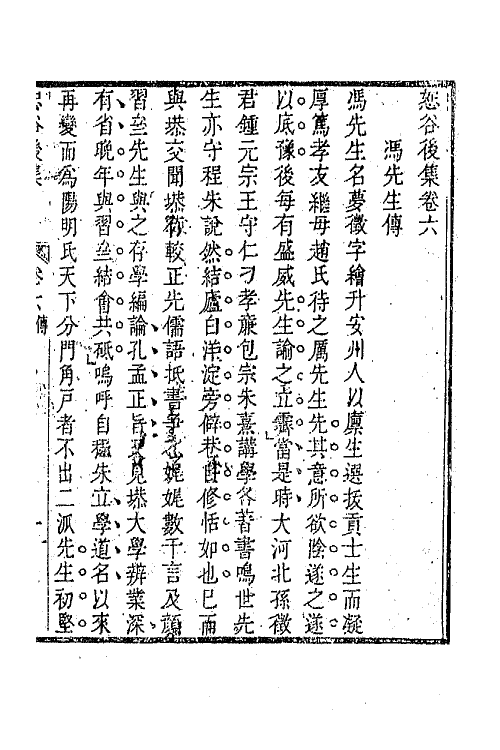 恕谷後集卷六
馮先生傳
馮先生名夢徵字繪升安州人以廩生選拔貢士生而凝
厚篤孝友繼母趙氏待之厲先生先其意所欲陰遂之遂
以底豫後每有盛威先生諭之立霽當是時大河北孫徵
君鍾元宗王守仁刁孝蓙包宗朱熹講學各著書鳴世先
生亦守程朱說然結廬白洋淀旁僻巷自修恬如也已而
與塨交聞塨稱較正先儒語抵書爭之娓娓數千言及顏
習齋先生與之存學編論孔孟正旨又見塨大學辨業深
有省晚年與習齋結會共砥嗚呼自程朱立學道名以來
再變而爲陽明氏天下分門角戸者不出二派先生初堅
恕谷後集 卷六傳 一